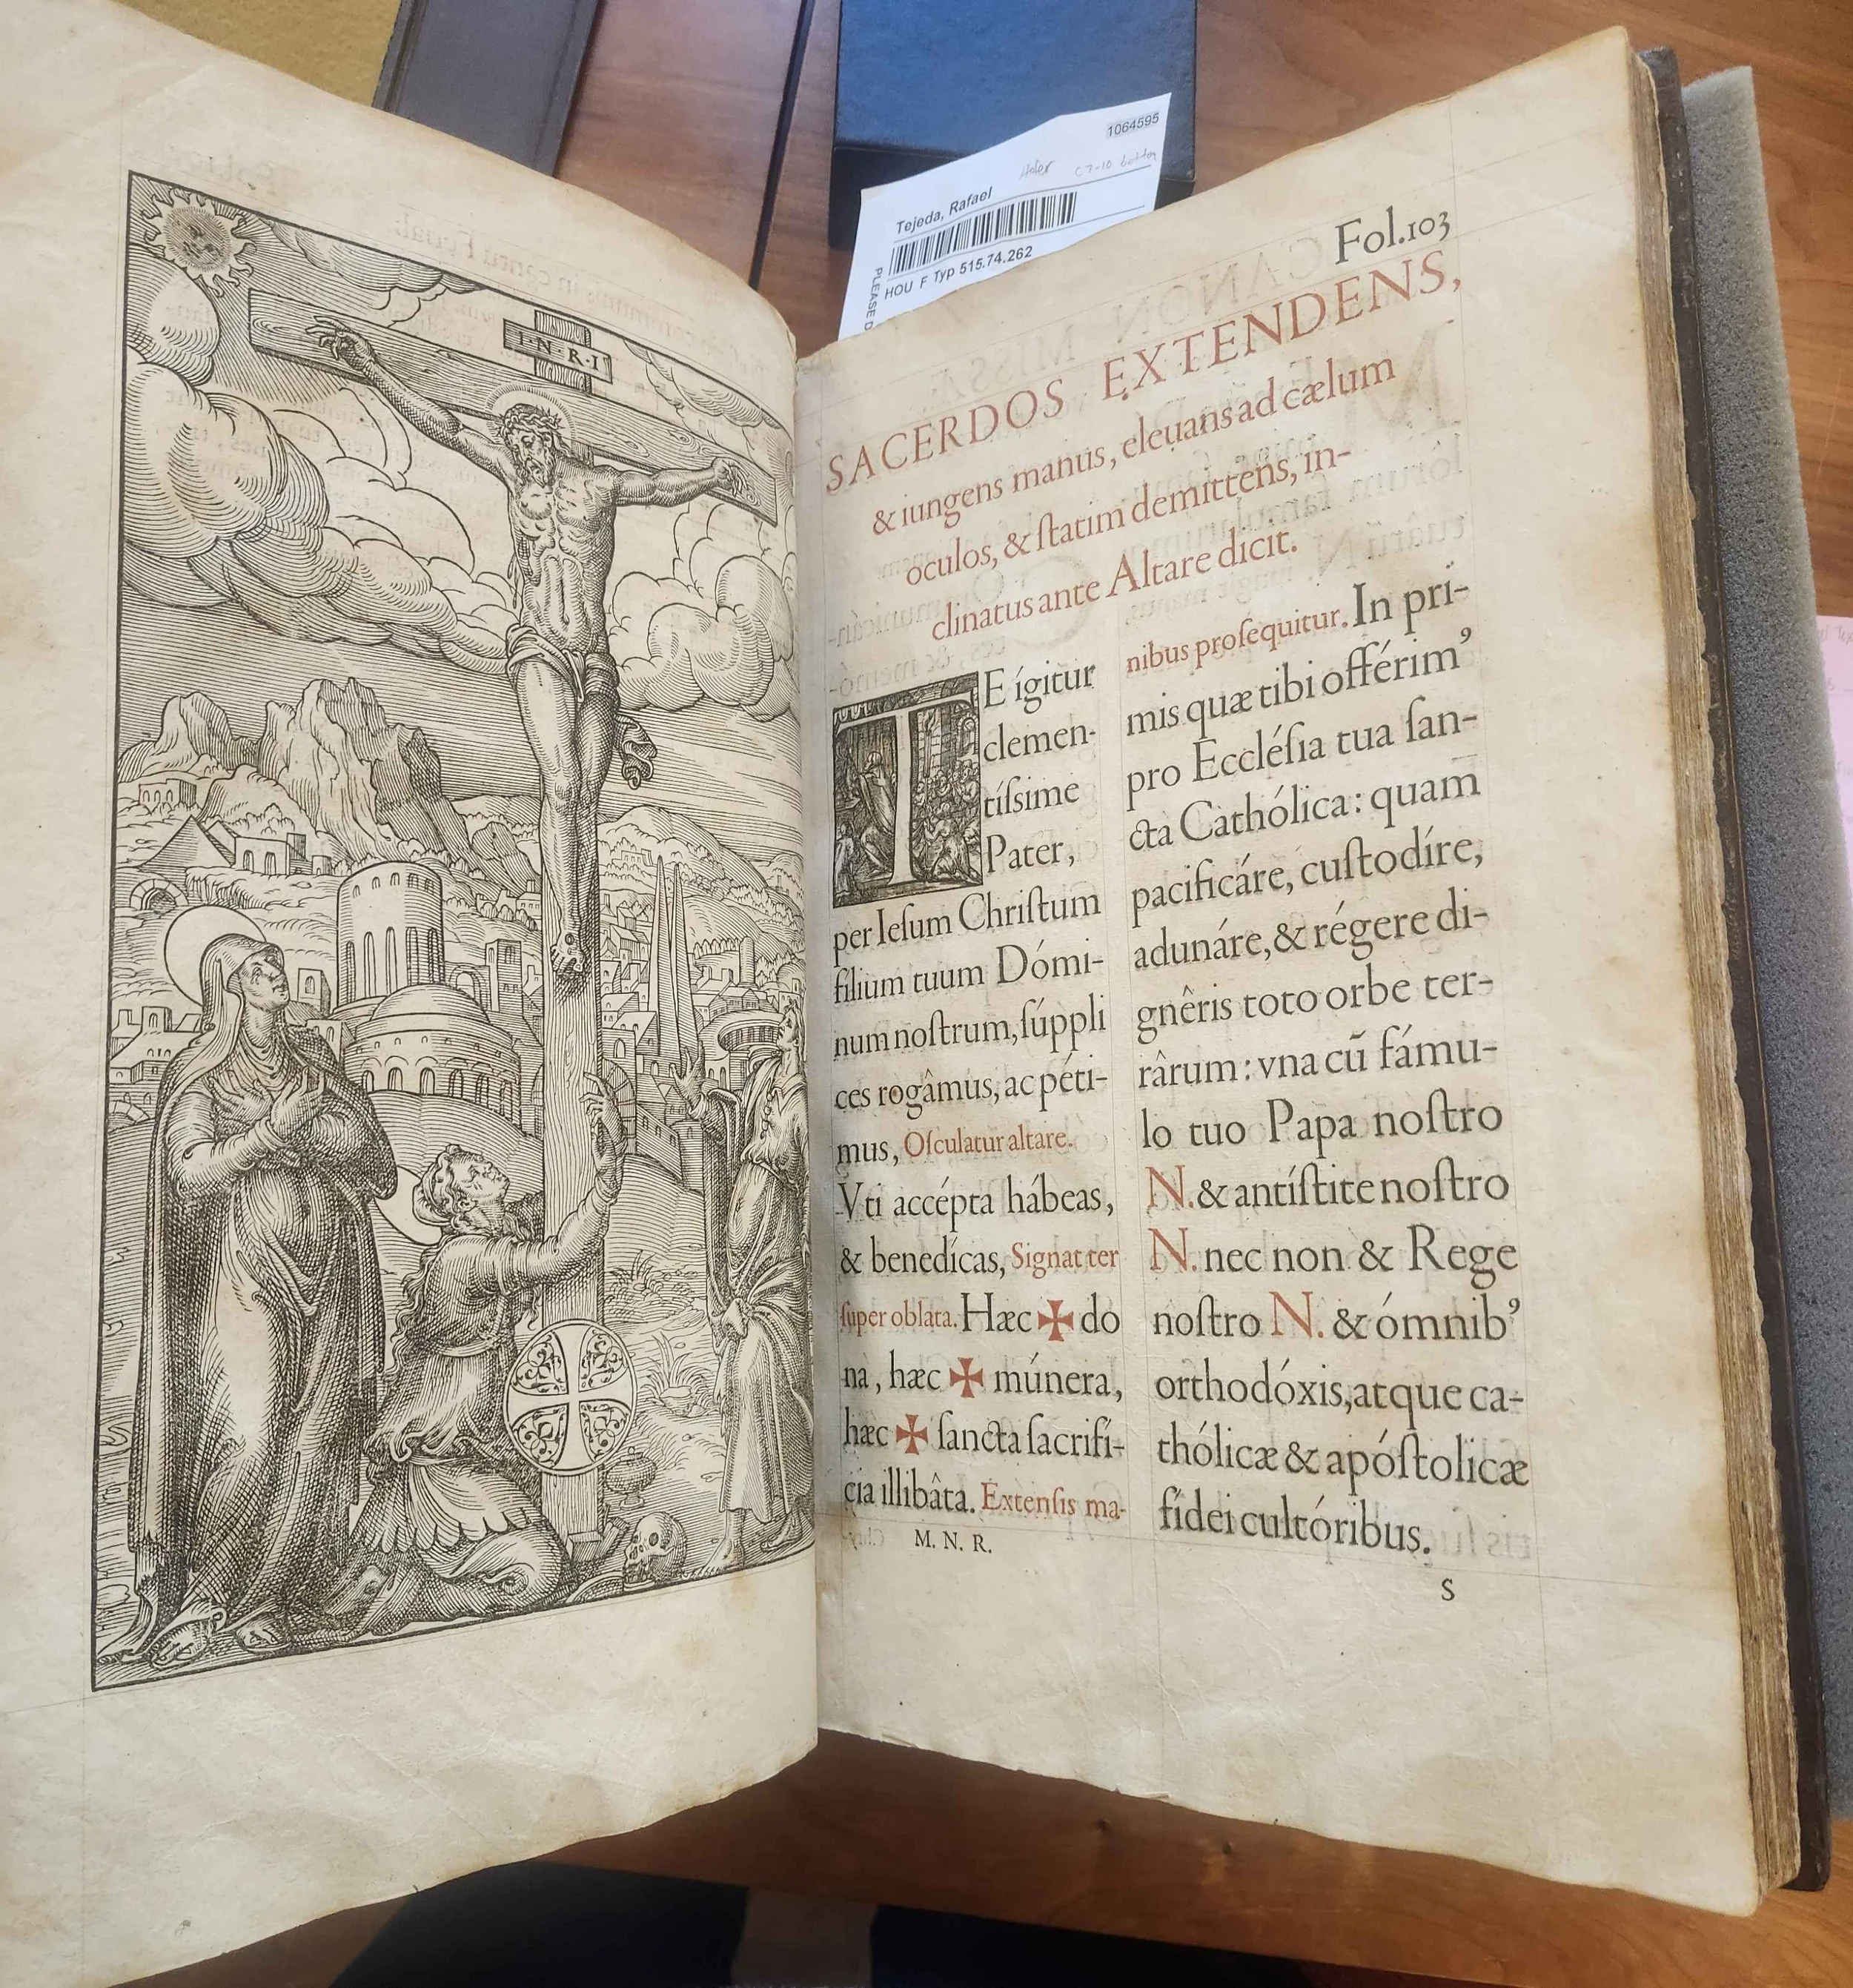 1064595
Tejeda, Rafael
HOU F Typ 515.74.262
PLEASE D
I·N·R·I
Fol.103
SACERDOS EXTENDENS,
& iungens manus, eleuans ad cælum
oculos, & ſtatim demittens, in-
clinatus ante Altare dicit.
TE ígitur
clemen-
tíſsime
Pater,
per Ieſum Chriſtum
filium tuum Dómi-
num noſtrum, ſúppli
ces rogâmus, ac péti-
mus, Oſculatur altare.
Vti accépta hábeas,
& benedícas, Signat ter
ſuper oblata. Hæc ✠ do
na, hæc ✠ múnera,
hæc ✠ ſancta ſacrifí-
cia illibâta. Extenſis ma-
M. N. R.
nibus proſequitur. In pri-
mis quæ tibi offérim’
pro Eccléſia tua ſan-
cta Cathólica: quam
pacificáre, cuſtodíre,
adunáre, & régere di-
gnêris toto orbe ter-
rârum: vna cū fámu-
lo tuo Papa noſtro
N. & antíſtite noſtro
N. nec non & Rege
noſtro N. & ómnib’
orthodóxis, atque ca-
thólicæ & apóſtolicæ
fídei cultóribus.
S